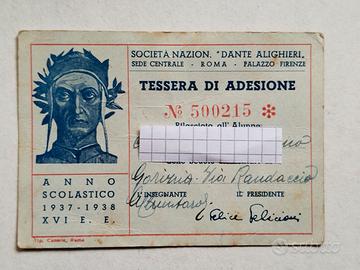 SOCIETÀ NAZION. "DANTE ALIGHIERI"
SEDE CENTRALE - ROMA - PALAZZO FIRENZE
TESSERA DI ADESIONE
№ 500215 ✻
Rilasciata all'Alunno
Gorizia - Via Randaccio
L'INSEGNANTE IL PRESIDENTE
Felice Felicioni
ANNO
SCOLASTICO
1937-1938
XVI E. F.
Tip. Cuneese, Roma
subito